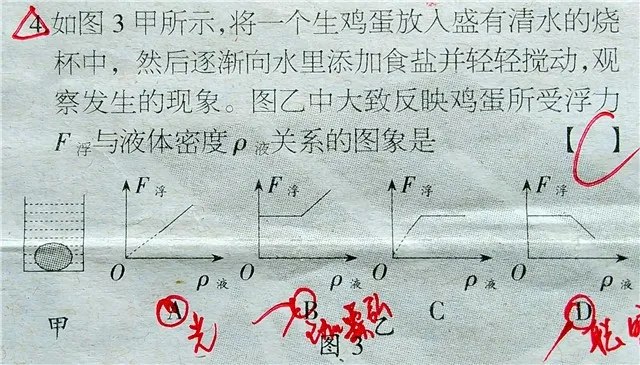 4.如图3甲所示,将一个生鸡蛋放入盛有清水的烧
杯中，然后逐渐向水里添加食盐并轻轻搅动,观
察发生的现象。图乙中大致反映鸡蛋所受浮力
F浮与液体密度ρ液关系的图象是 【C】
F浮 F浮 F浮 F浮
O ρ液 O ρ液 O ρ液 O ρ液
甲 A B C D
光
乙
图3